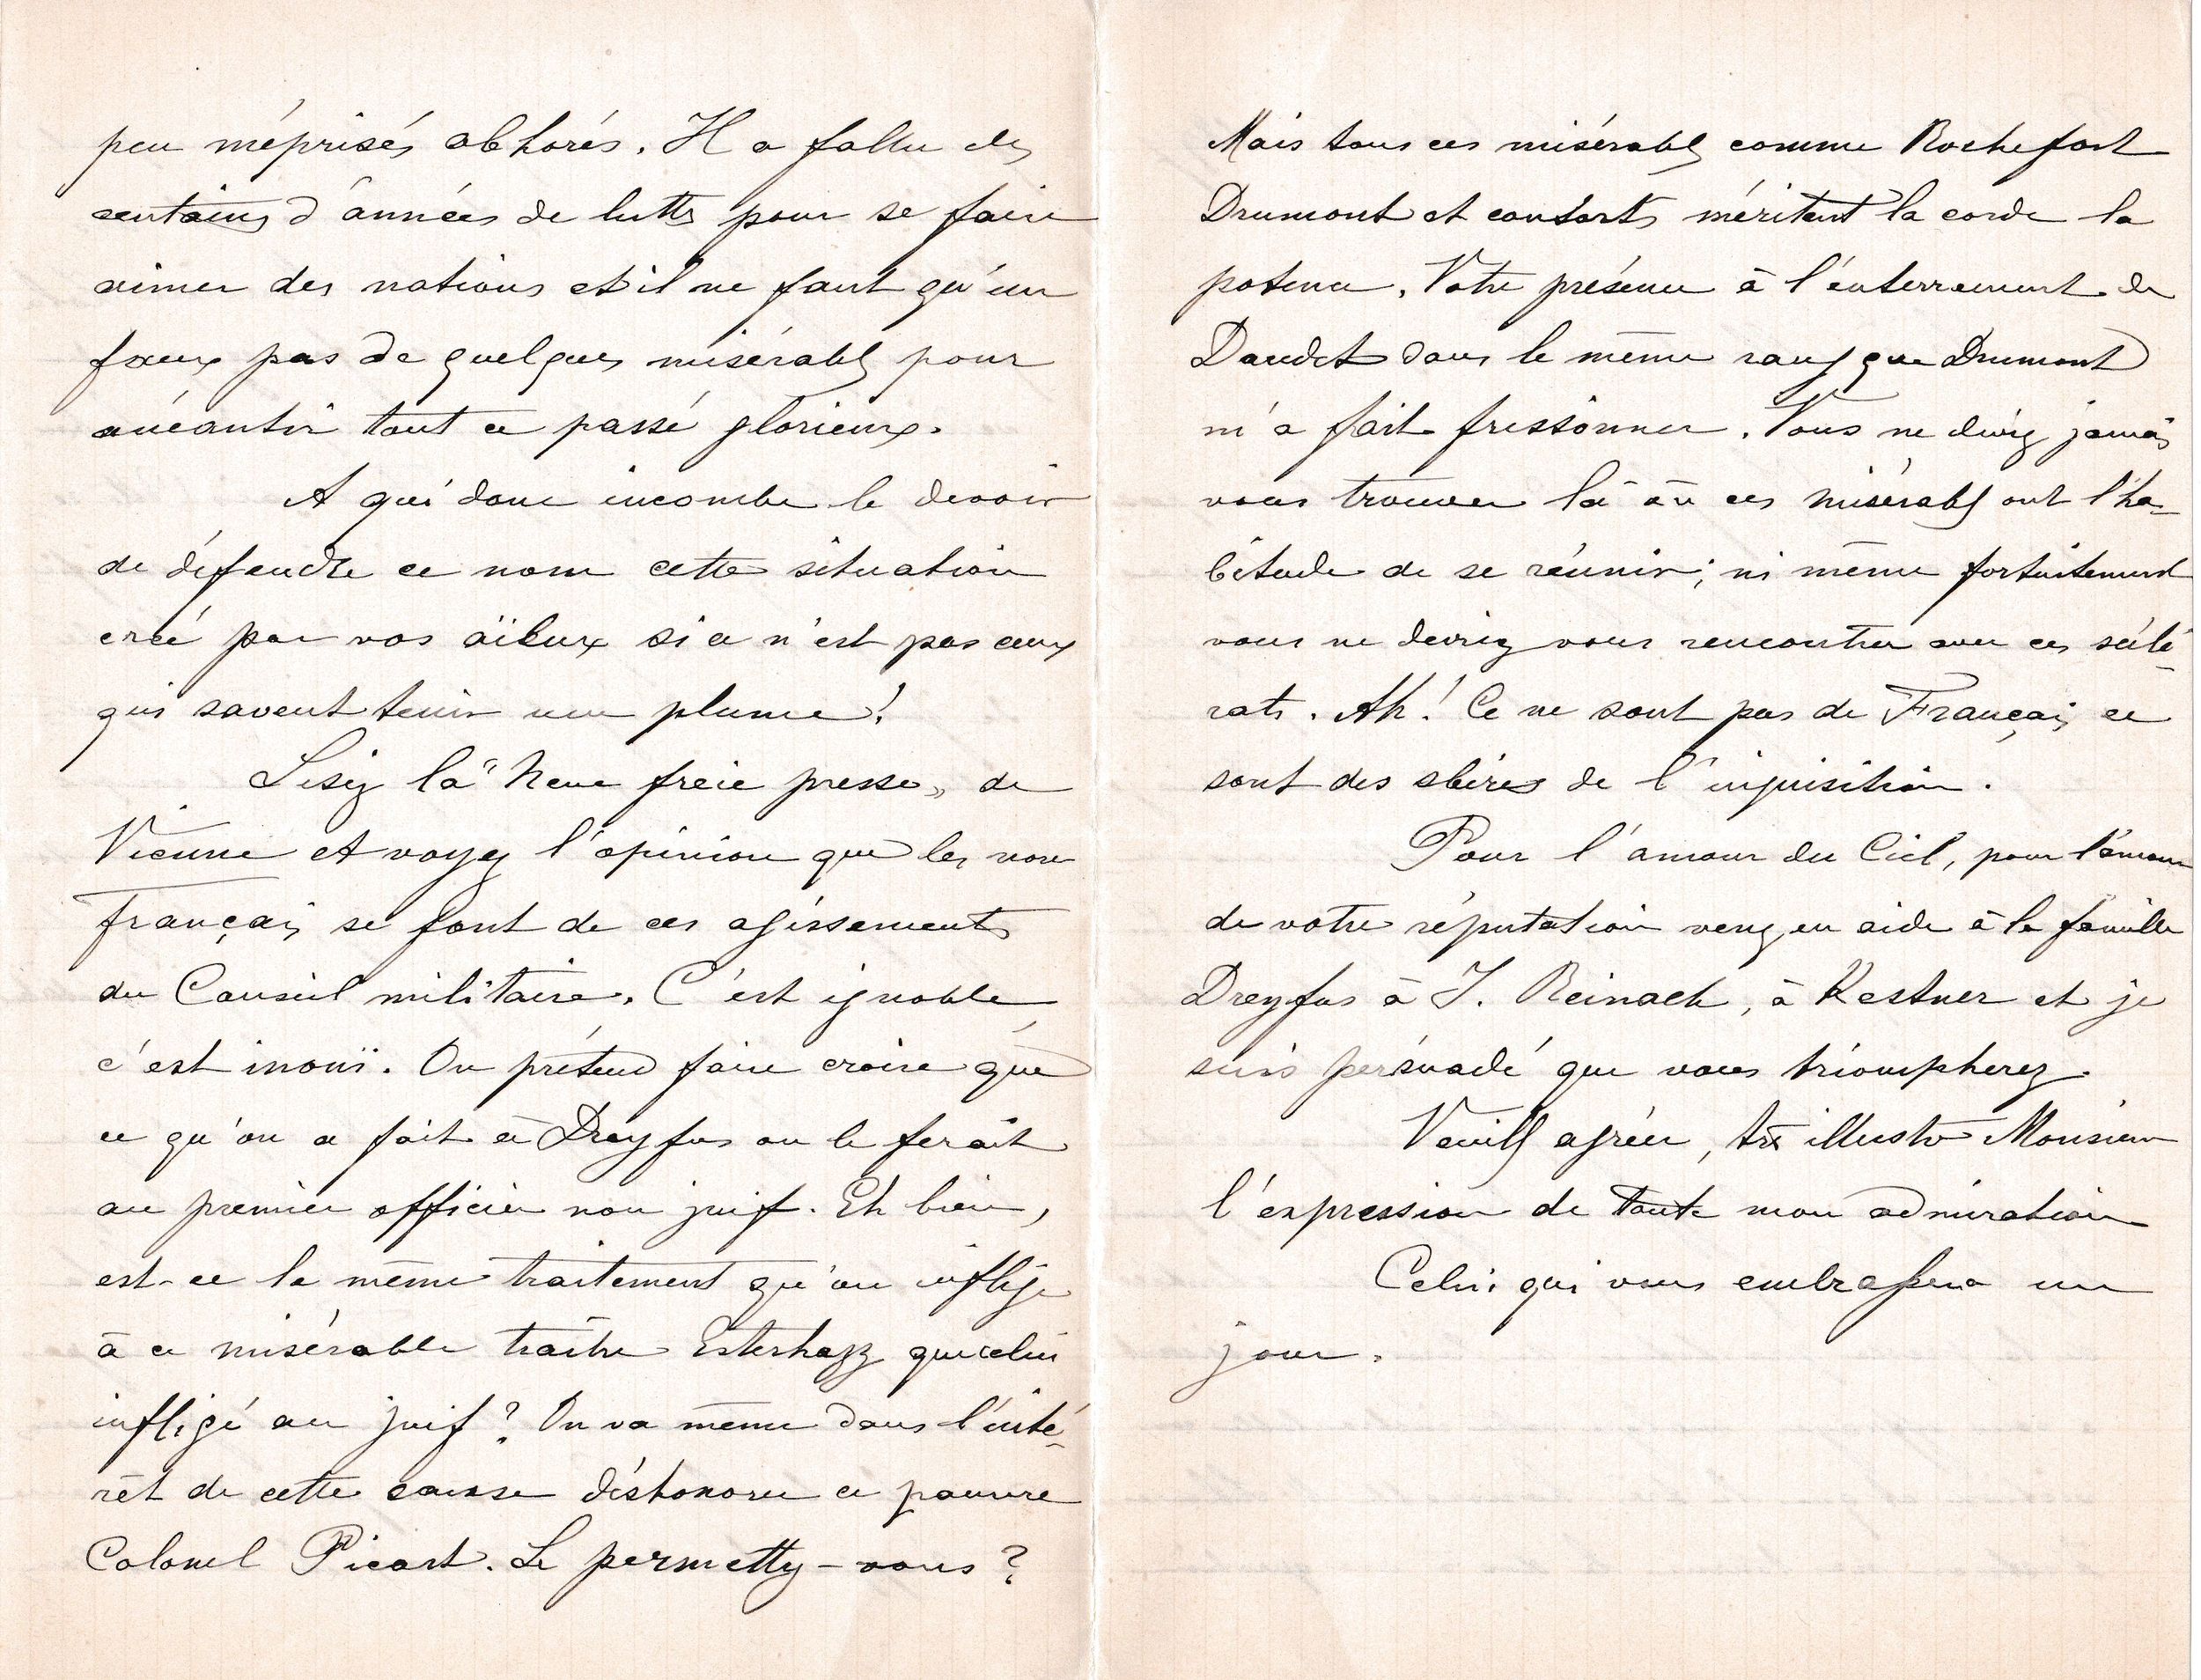 peu méprisés abhorés. Il a fallu des
centaines d'années de luttes pour se faire
aimer des nations et il ne faut qu'un
faux pas de quelques misérables pour
anéantir tout ce passé glorieux.
A qui donc incombe le devoir
de défendre ce nom cette situation
créé par vos aïeux si ce n'est pas ceux
qui savent tenir une plume!
Lisez la "Neue freie presse" de
Vienne et voyez l'opinion que les non
français se font de ces agissements
du Conseil militaire. C'est ignoble
c'est inouï. On prétend faire croire que
ce qu'on a fait à Dreyfus on le ferait
au premier officier non juif. Eh bien,
est-ce le même traitement qu'on inflige
à ce misérable traître Esterhazy que celui
infligé au juif? On va même dans l'inté-
rêt de cette cause déshonorer ce pauvre
Colonel Picart. Le permettez-vous?
Mais tous ces misérables comme Rochefort
Drumont et consorts méritent la corde la
potence. Votre présence à l'enterrement de
Daudet dans le même rang que Drumont
m'a fait frissonner. Vous ne deviez jamais
vous trouver là où ces misérables ont l'ha-
bitude de se réunir; ni même fortuitement
vous ne devriez vous rencontrer avec ces scélé-
rats. Ah! Ce ne sont pas de Français ce
sont des sbires de l'inquisition.
Pour l'amour du Ciel, pour l'amour
de votre réputation venez en aide à la famille
Dreyfus à J. Reinach, à Kestner et je
suis persuadé que vous triompherez.
Veuillez agréer, très illustre Monsieur
l'expression de toute mon admiration
Celui qui vous embrassera un
jour.